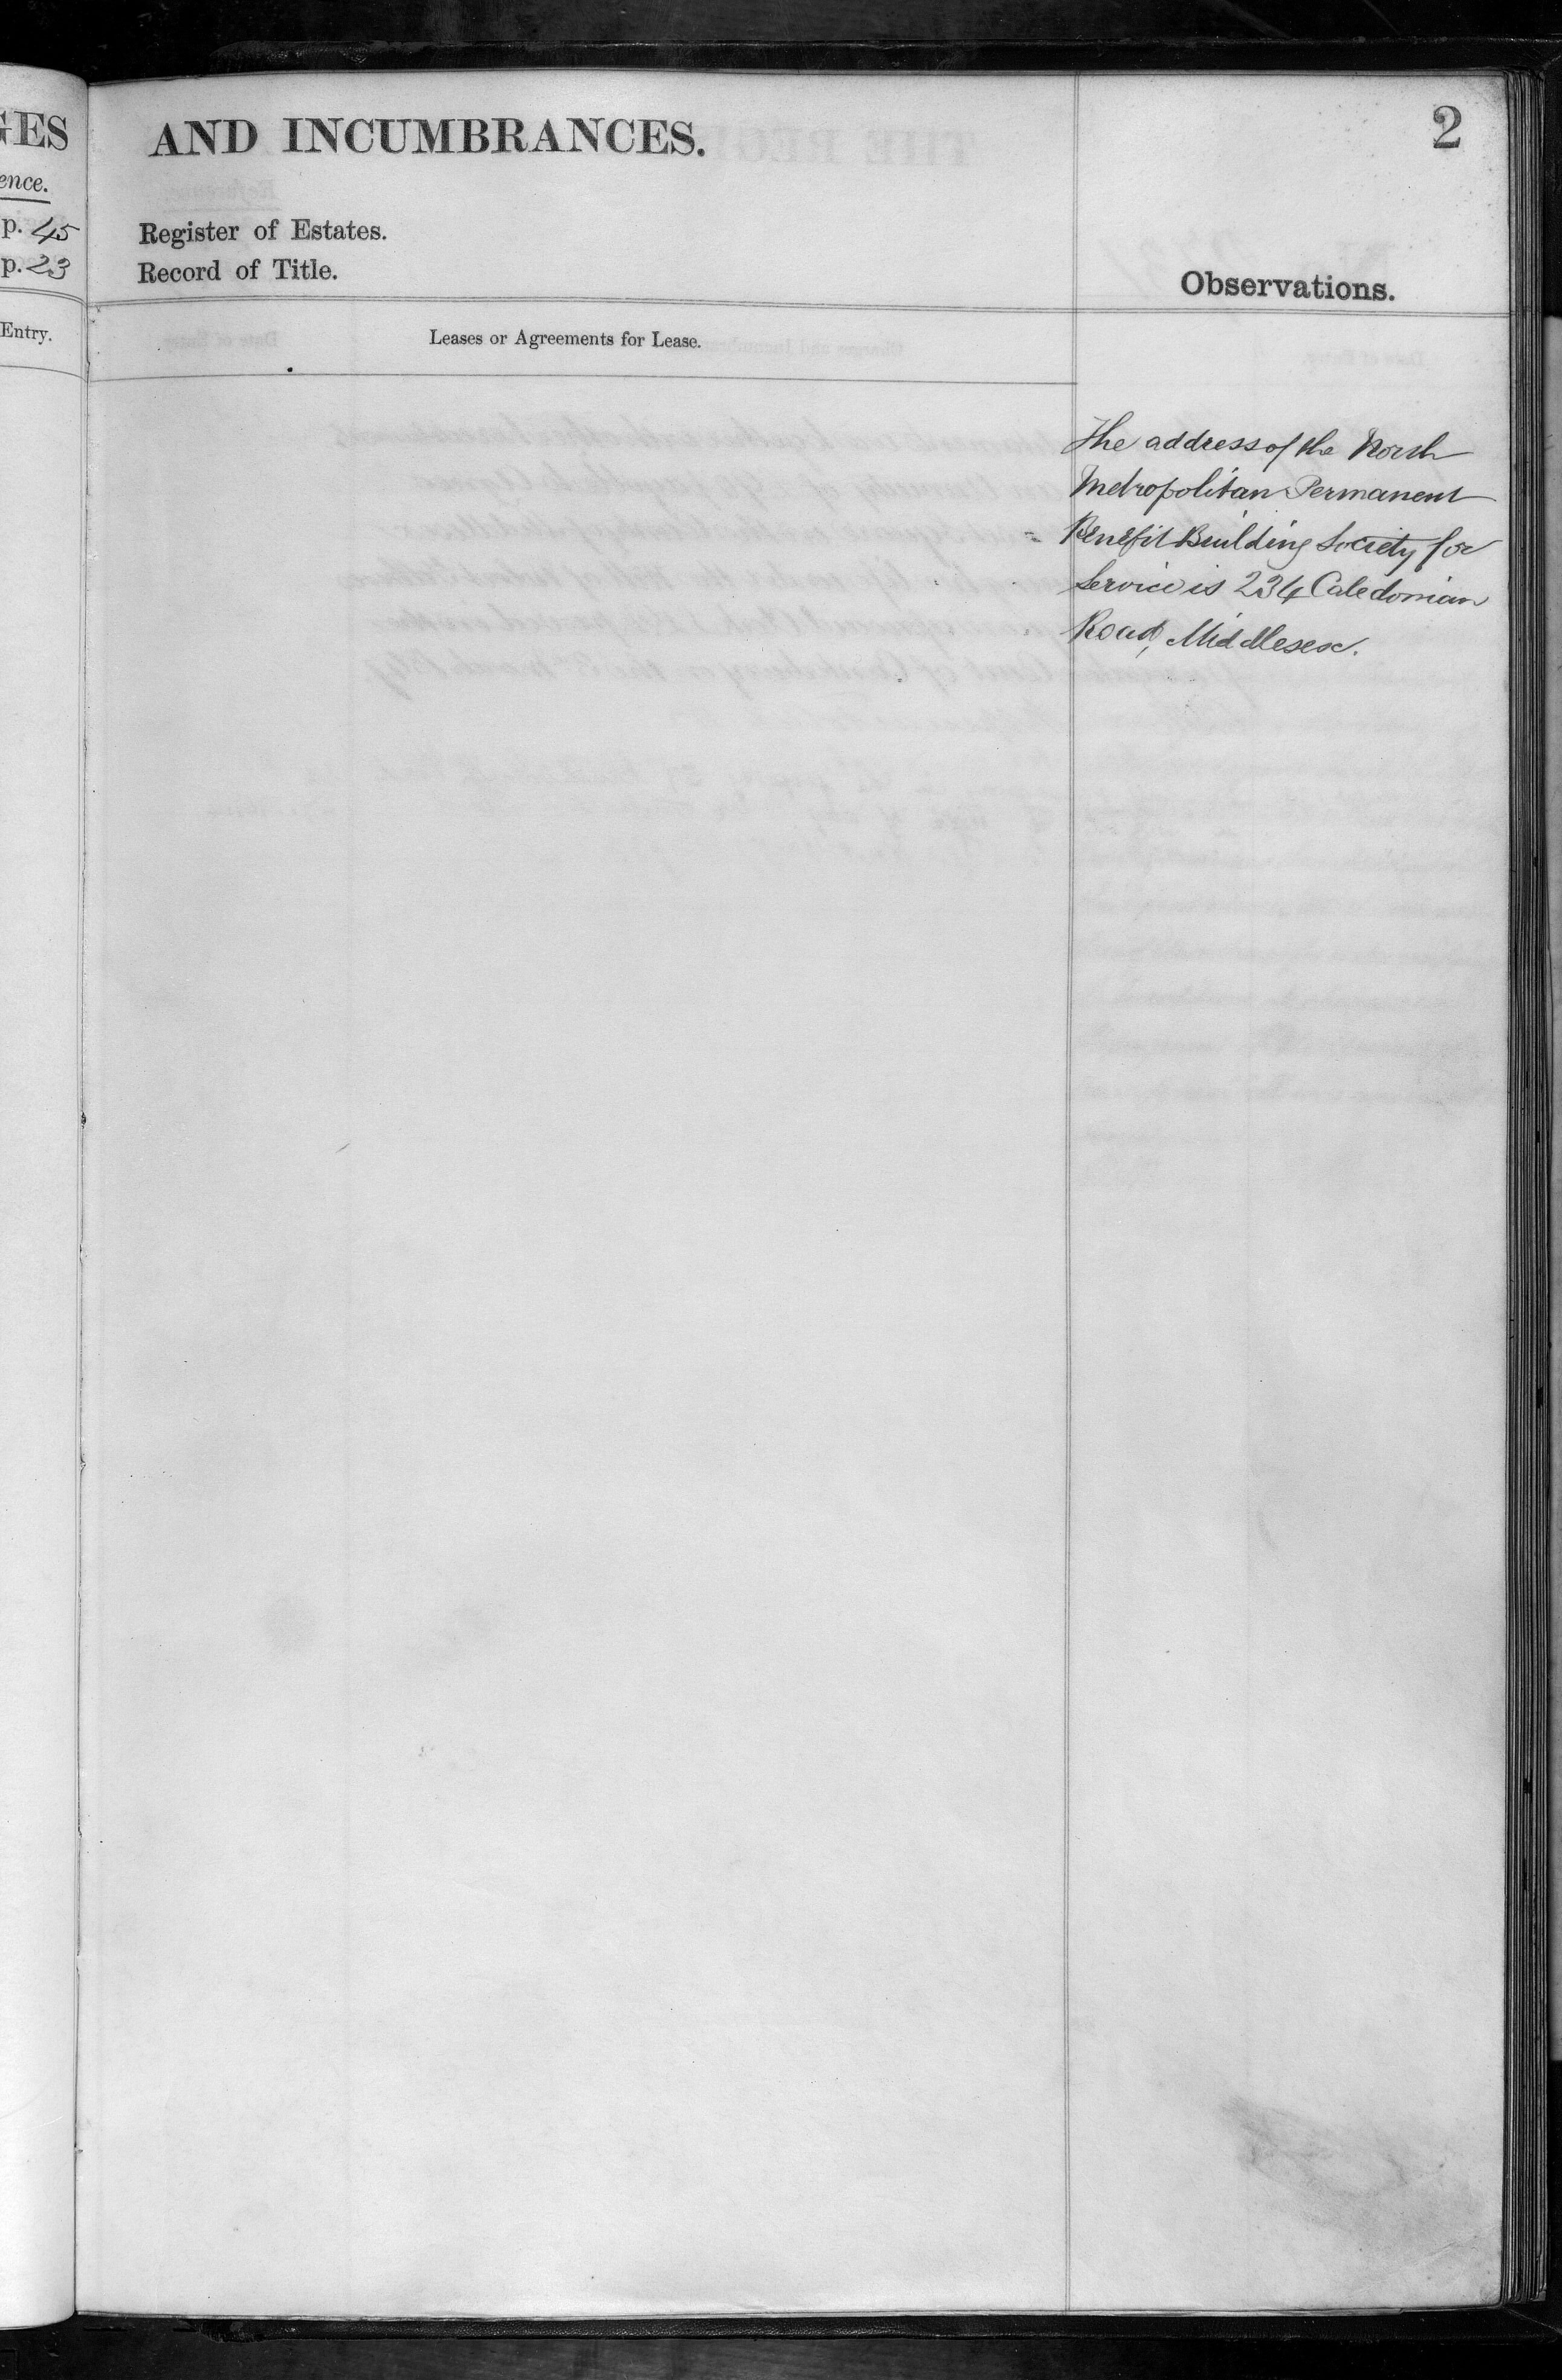 GES
ence.
p. 45
p. 23
Entry.
AND INCUMBRANCES.
2
Register of Estates.
Record of Title.
Observations.
Leases or Agreements for Lease.
The address of the North
Metropolitan Permanent
Benefit Building Society for
Service is 234 Caledonian
Road, Middlesex.